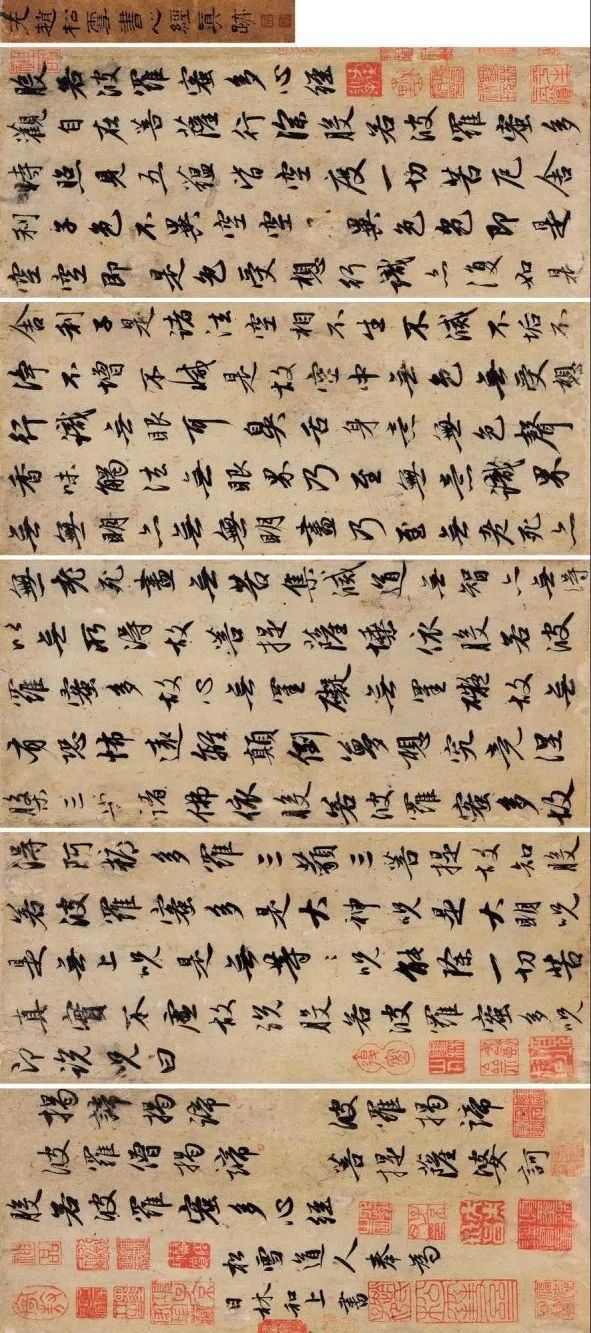 元趙松雪書心經真跡
般若波羅蜜多心經
觀自在菩薩行深般若波羅蜜多
時照見五蘊皆空度一切苦厄舍
利子色不異空空、異色色即是
空空即是色受想行識亦復如是
舍利子是諸法空相不生不滅不垢不
淨不增不減是故空中無色無受想
行識無眼耳鼻舌身意無色聲
香味觸法無眼界乃至無意識界
無無明亦無無明盡乃至無老死亦
無老死盡無苦集滅道無智亦無得
以無所得故菩提薩埵依般若波
羅蜜多故心無罣礙無罣礙故無
有恐怖遠離顛倒夢想究竟涅
槃三世諸佛依般若波羅蜜多故
得阿耨多羅三藐三菩提故知般
若波羅蜜多是大神咒是大明咒
是無上咒是無等〻咒能除一切苦
真實不虛故說般若波羅蜜多咒
即說咒曰
揭諦揭諦 波羅揭諦
波羅僧揭諦 菩提薩婆訶
般若波羅蜜多心經
松雪道人奉為
日林和上書